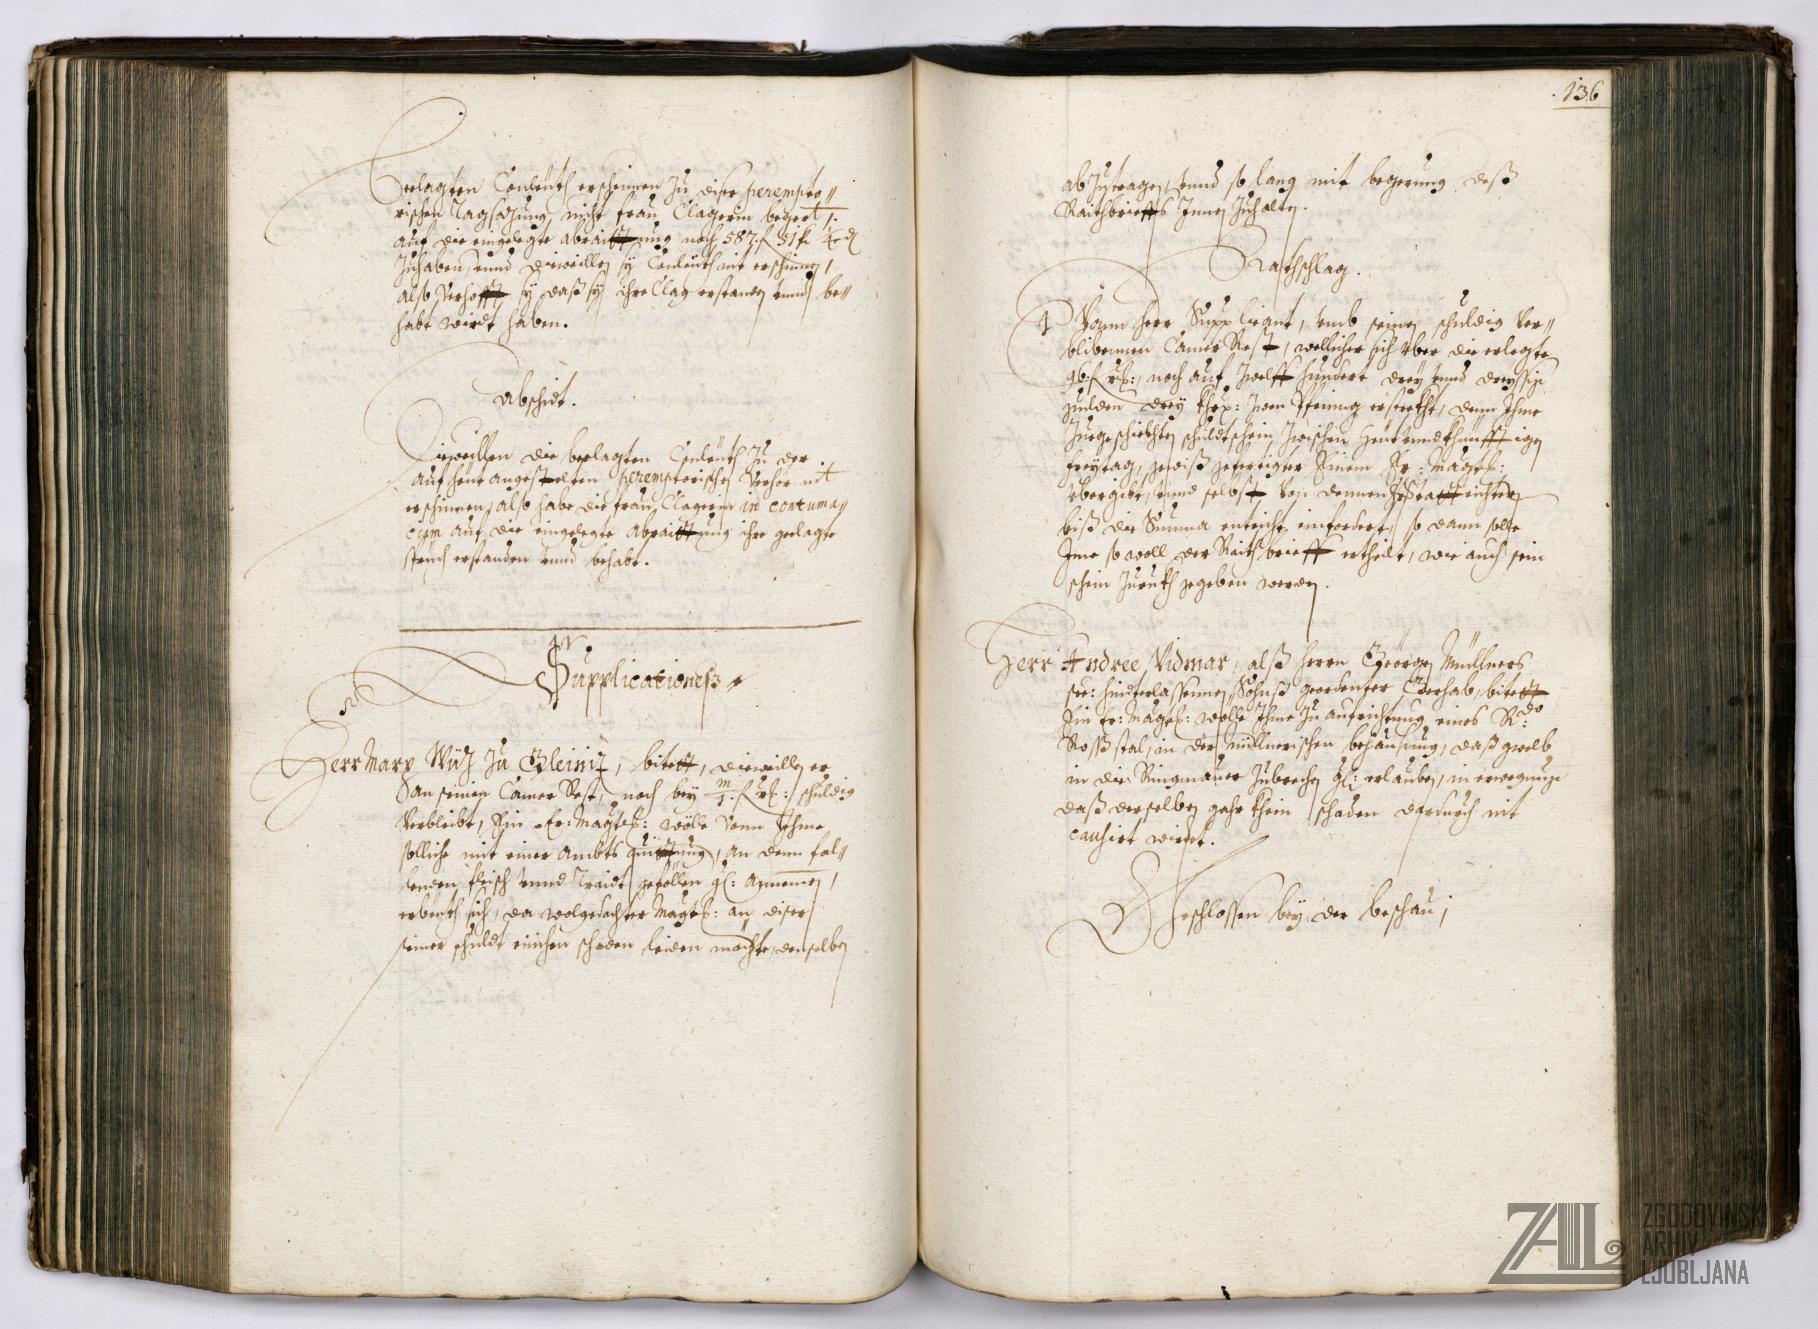 beclagten Conleuth erscheinen zu diser perempto„
rischen Tagsazung, nicht frau Clagerin begert,
auf die eingelegte abraittung noch 587 f 51 k
zuhaben, vnnd dieweillen sy Conleuth nit erschinen,
also verhofft sy daß sy ihre Clag erstanden vnnd be„
habt wirdt haben.
Abschidt.
Dieweillen die beclagten Conleuth zu der
auf heut angestelten peremptorischen Verhör nit
erschinnen, also habe die frau Clagerin in contuma„
ciam auf die eingelegte abraittung ihre geclagte
spruch erstanden vnnd behabt.
Supplicationes
Herr Marx Wiz zu Gleiniz, bitett, dieweillen er
an seinem Camer Rest, noch bey schuldig
verbleibt, Ein Er: Magts: wölle vonn Ihme
solliche mit einer Ambts quittung, an denn fal„
lenden fleisch vnnd Traidt gefellen gl: Annemen,
erbeuth sich, da wolgedachter Magts: an diser
seiner schuldt einichen schaden leiden mächte, denselben
136
abzutragen, vnnd so lang mit begerung deß
Raithbrieffs Innen zuhalten.
Rathschlag.
Wann herr Supplicant, vmb seinen schuldig ver„
blibennen Camer Rest, wellicher sich vber die erlegte
noch auf zwelff hundert drey vnnd dreyssig
gulden drey khrz: zwen Pfening erstrekht, denn Ihme
zuegeschickhten schuldtschein zwischen heut vnnd khunfftigen
freytag, gewiß gefertigter Einem Er: Magts:
vbergibt, vnnd selbst von dennen
biß die Summa enticht einfordert, so dann solle
Ime so woll der Raith brieff ertheilt, wie auch sein
schein zuruckh gegeben werden.
Herr Andree Vidmar, alß herrn Georgen Müllners
see: hindterlassennen Sohnß geordenter Gerhab, bitett
Ein Er: Magts: wölle Ihme zu aufrichtung eines Rdo
Rosß stal, in der müllnerischen behausung, daß gwelb
in die Ringmauer zubrechen gl: erlauben, in erwegung
daß derselben gahr khein schaden dardurch nit
causirt wirdt.
Geschlossen bey der beschau,
ZAL
ZGODOVINSKI
ARHIV
LJUBLJANA